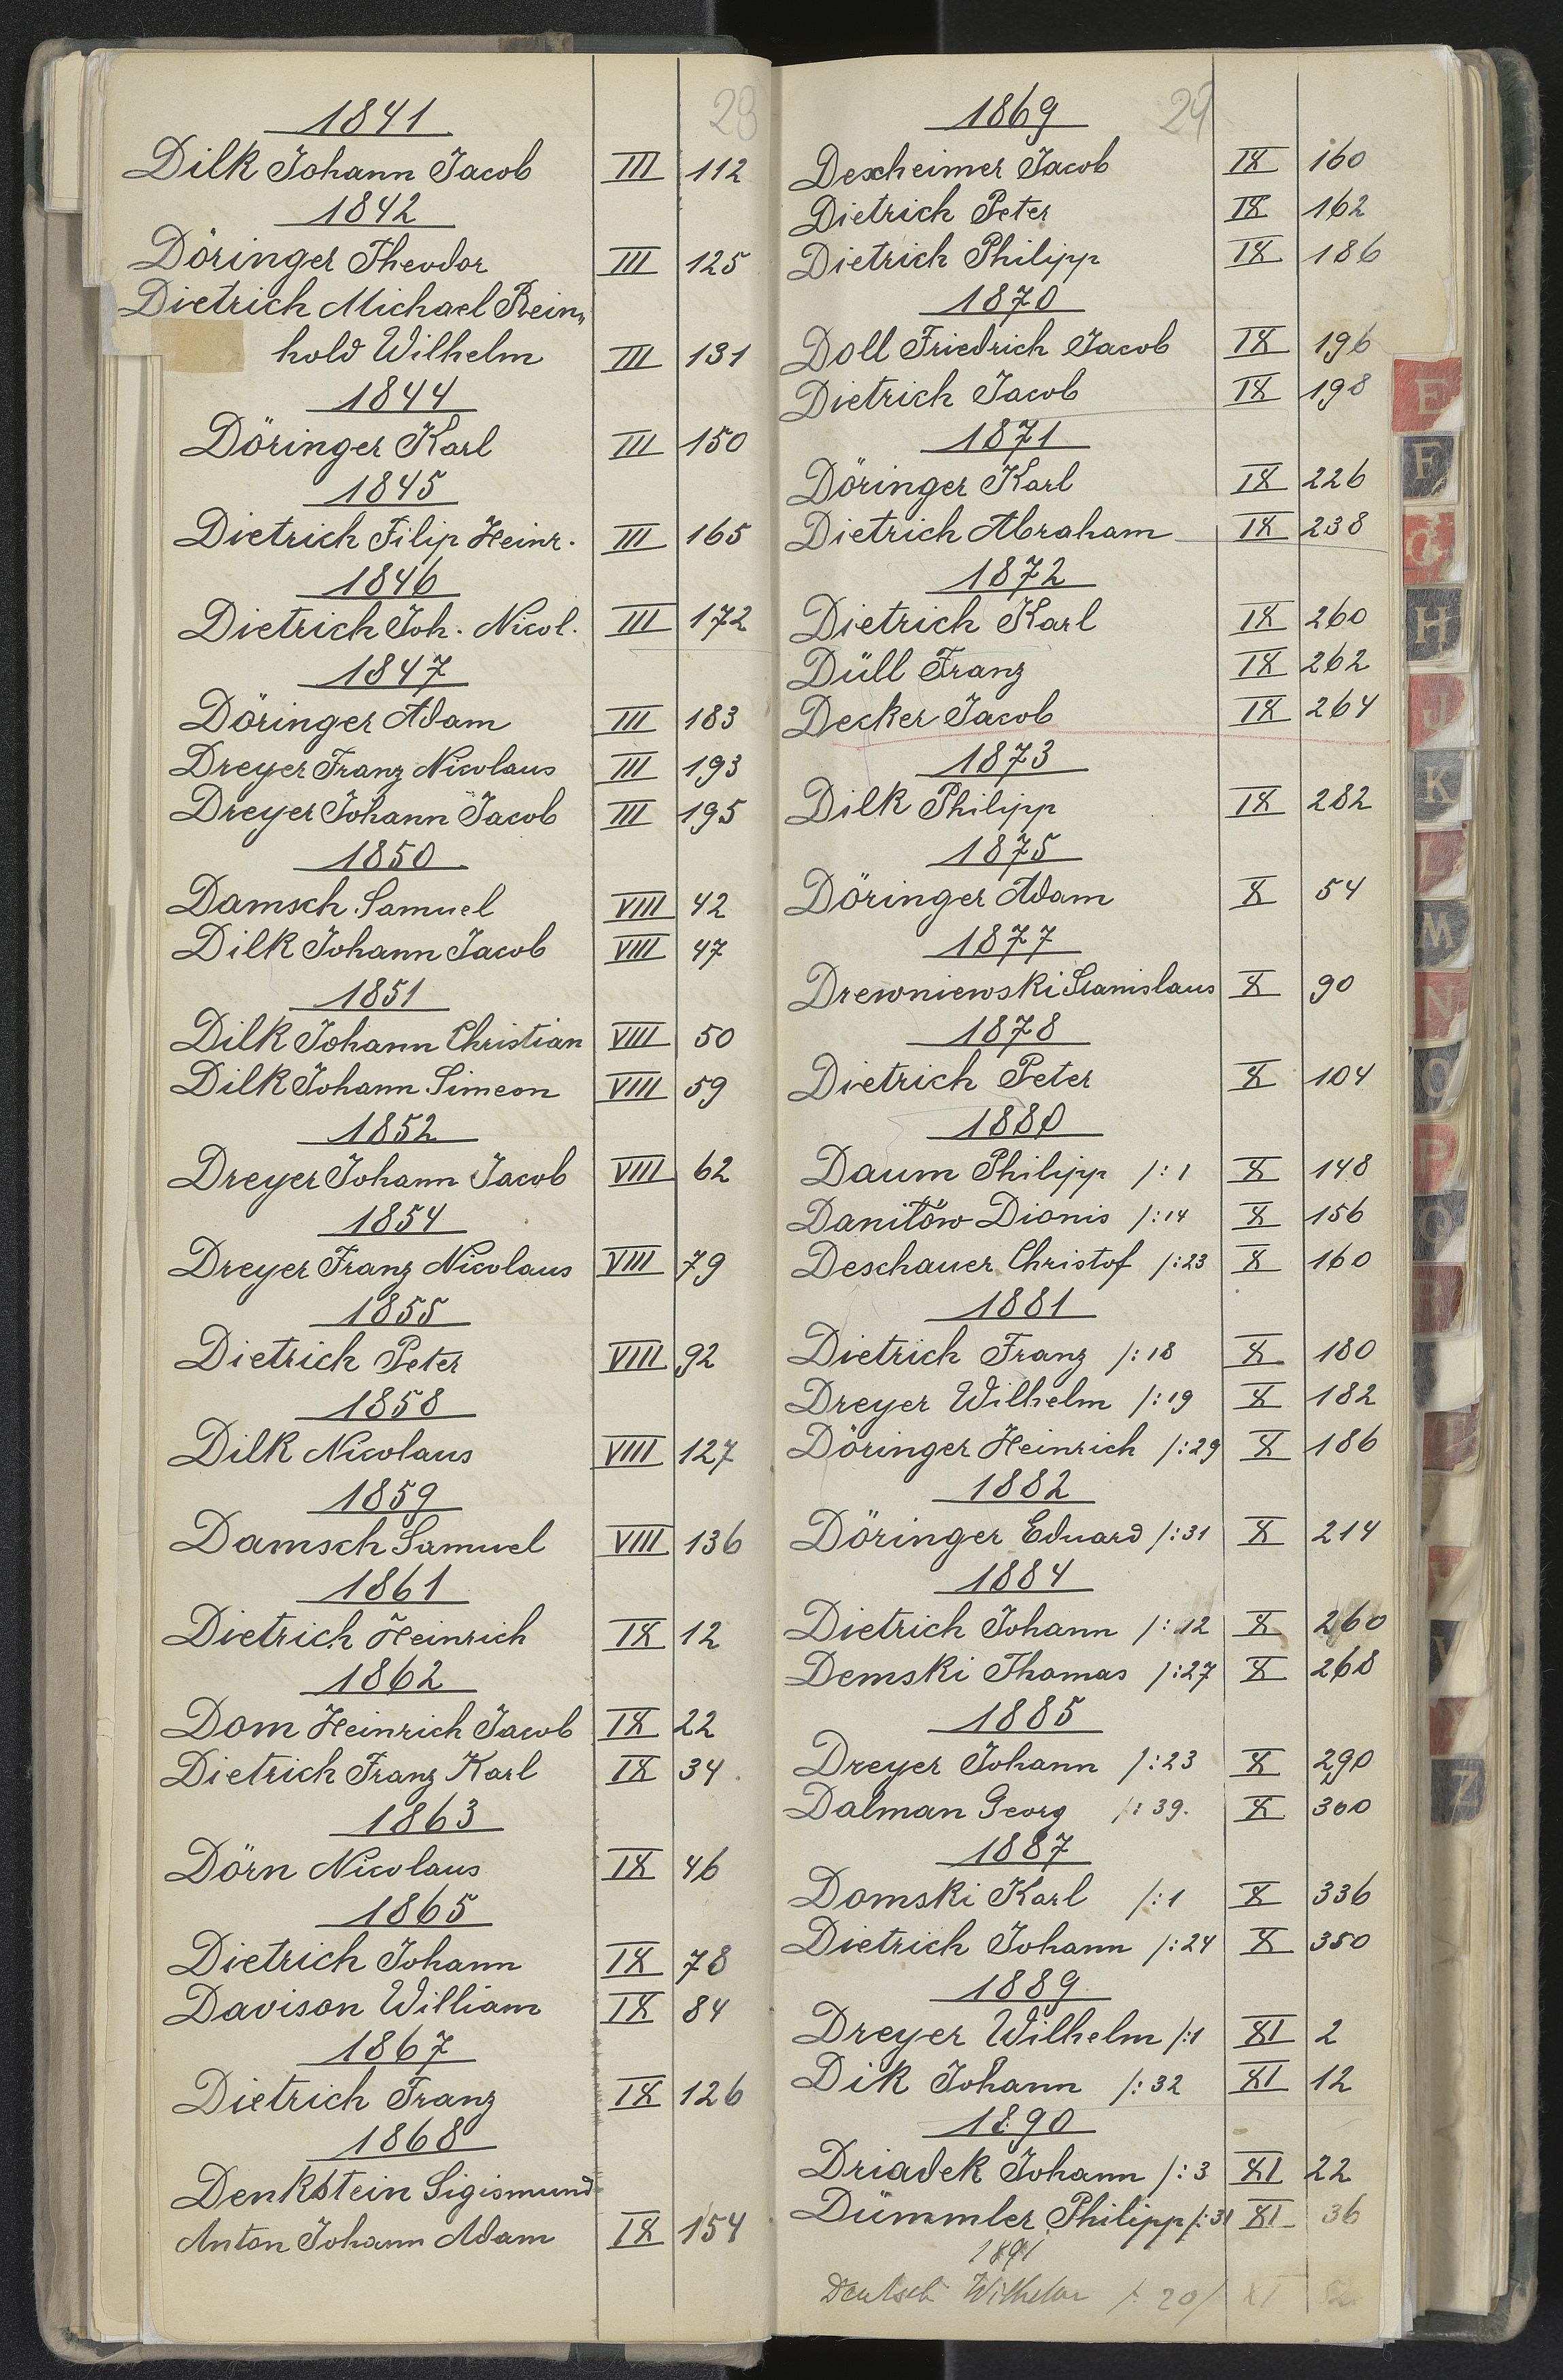 28
1841
Dilk Johann Jacob III 112
1842
Döringer Theodor III 125
Dietrich Michael Rein„
hold Wilhelm III 131
1844
Döringer Karl III 150
1845
Dietrich Filip Heinr. III 165
1846
Dietrich Joh. Nicol. III 172
1847
Döringer Adam III 183
Dreyer Franz Nicolaus III 193
Dreyer Johann Jacob III 195
1850
Damsch Samuel VIII 42
Dilk Johann Jacob VIII 47
1851
Dilk Johann Christian VIII 50
Dilk Johann Simeon VIII 59
1852
Dreyer Johann Jacob VIII 62
1854
Dreyer Franz Nicolaus VIII 79
1855
Dietrich Peter VIII 92
1858
Dilk Nicolaus VIII 127
1859
Damsch Samuel VIII 136
1861
Dietrich Heinrich IX 12
1862
Dom Heinrich Jacob IX 22
Dietrich Franz Karl IX 34
1863
Dörn Nicolaus IX 46
1865
Dietrich Johann IX 78
Davison William IX 84
1867
Dietrich Franz IX 126
1868
Denkstein Sigismund
Anton Johann Adam IX 154
29
1869
Dexheimer Jacob IX 160
Dietrich Peter IX 162
Dietrich Philipp IX 186
1870
Doll Friedrich Jacob IX 196
Dietrich Jacob IX 198
1871
Döringer Karl IX 226
Dietrich Abraham IX 238
1872
Dietrich Karl IX 260
Düll Franz IX 262
Decker Jacob IX 264
1873
Dilk Philipp IX 282
1875
Döringer Adam X 54
1877
Drewniewski Stanislaus X 90
1878
Dietrich Peter X 104
1880
Daum Philipp /:1 X 148
Danitów Dionis /:14 X 156
Deschauer Christof /:23 X 160
1881
Dietrich Franz /:18 X 180
Dreyer Wilhelm /:19 X 182
Döringer Heinrich /:29 X 186
1882
Döringer Eduard /:31 X 214
1884
Dietrich Johann /:12 X 260
Demski Thomas /:27 X 268
1885
Dreyer Johann /:23 X 290
Dalman Georg /:39. X 300
1887
Domski Karl /:1 X 336
Dietrich Johann /:24 X 350
1889
Dreyer Wilhelm /:1 XI 2
Dik Johann /:32 XI 12
1890
Driadek Johann /:3 XI 22
Dümmler Philipp /:31 XI 36
1891
Deutsch Wilhelm /:20/ XI 52
E
F
G
H
J
K
L
M
N
O
P
Q
R
V
Z